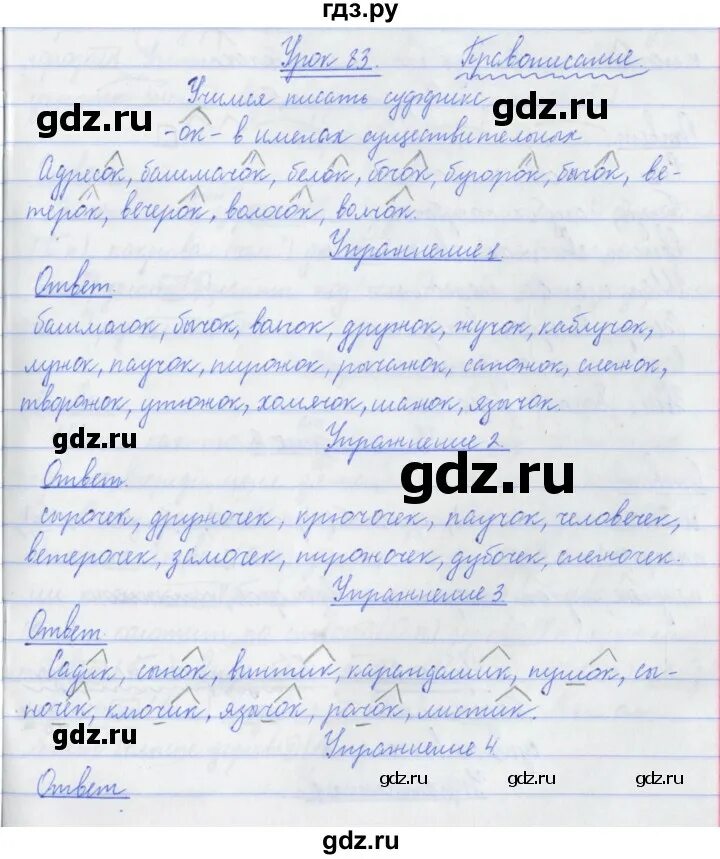 гдз.ру
Урок 83. Правописание.
gdz.ru
Учимся писать суффикс
gdz.ru
-ок- в именах существительных
Адресок, башмачок, белок, бочок, бугорок, бычок, ве-
терок, вечерок, волосок, волчок.
Упражнение 1
Ответ.
башмачок, бычок, волчок, дружок, жучок, каблучок,
лужок, паучок, пирожок, рычажок, сапожок, снежок,
творожок, утюжок, хомячок, шажок, язычок.
gdz.ru
Упражнение 2.
gdz.ru
Ответ.
сырочек, дружочек, крючочек, паучок, человечек,
ветерочек, замочек, пирожочек, дубочек, снежочек.
Упражнение 3
Ответ
Садик, сынок, винтик, карандашик, пушок, сы-
ночек, ключик, язычок, рачок, листик.
gdz.ru
Упражнение 4
Ответ
gdz.ru
gdz.ru
gdz.ru